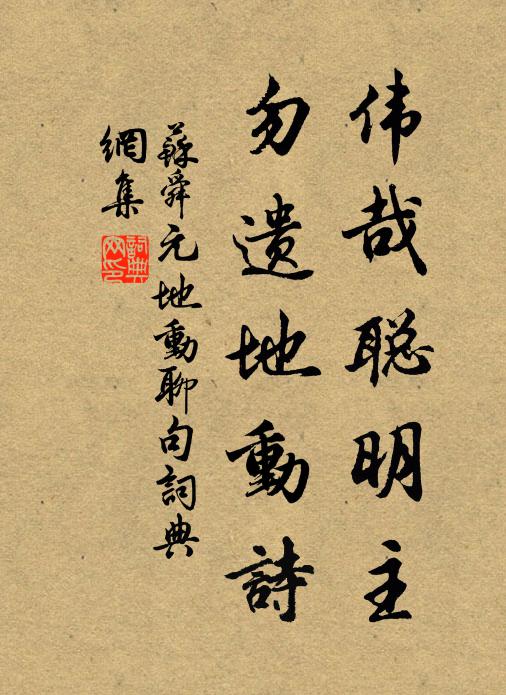 伟哉聪明主
勿遗地動詩
蘇舜元地動聊句詞典
網集
詞典网印